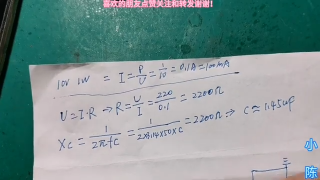 喜欢的朋友点赞关注和转发谢谢!
10V 1W = I = P/U = 1/10 = 0.1A = 100mA
U = I·R → R = U/I = 220/0.1 = 2200Ω
XC = 1/2πfC = 1/2×3.14×50×C = 2200Ω ⇒ C ≈ 1.45uf
小陈